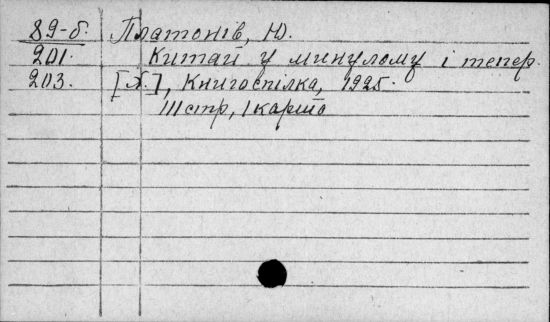 89-б. Платонів, Ю.
201. Китай у минулому і тепер.
203. [Х.], Книгоспілка, 1925.
111 стр, 1 карта